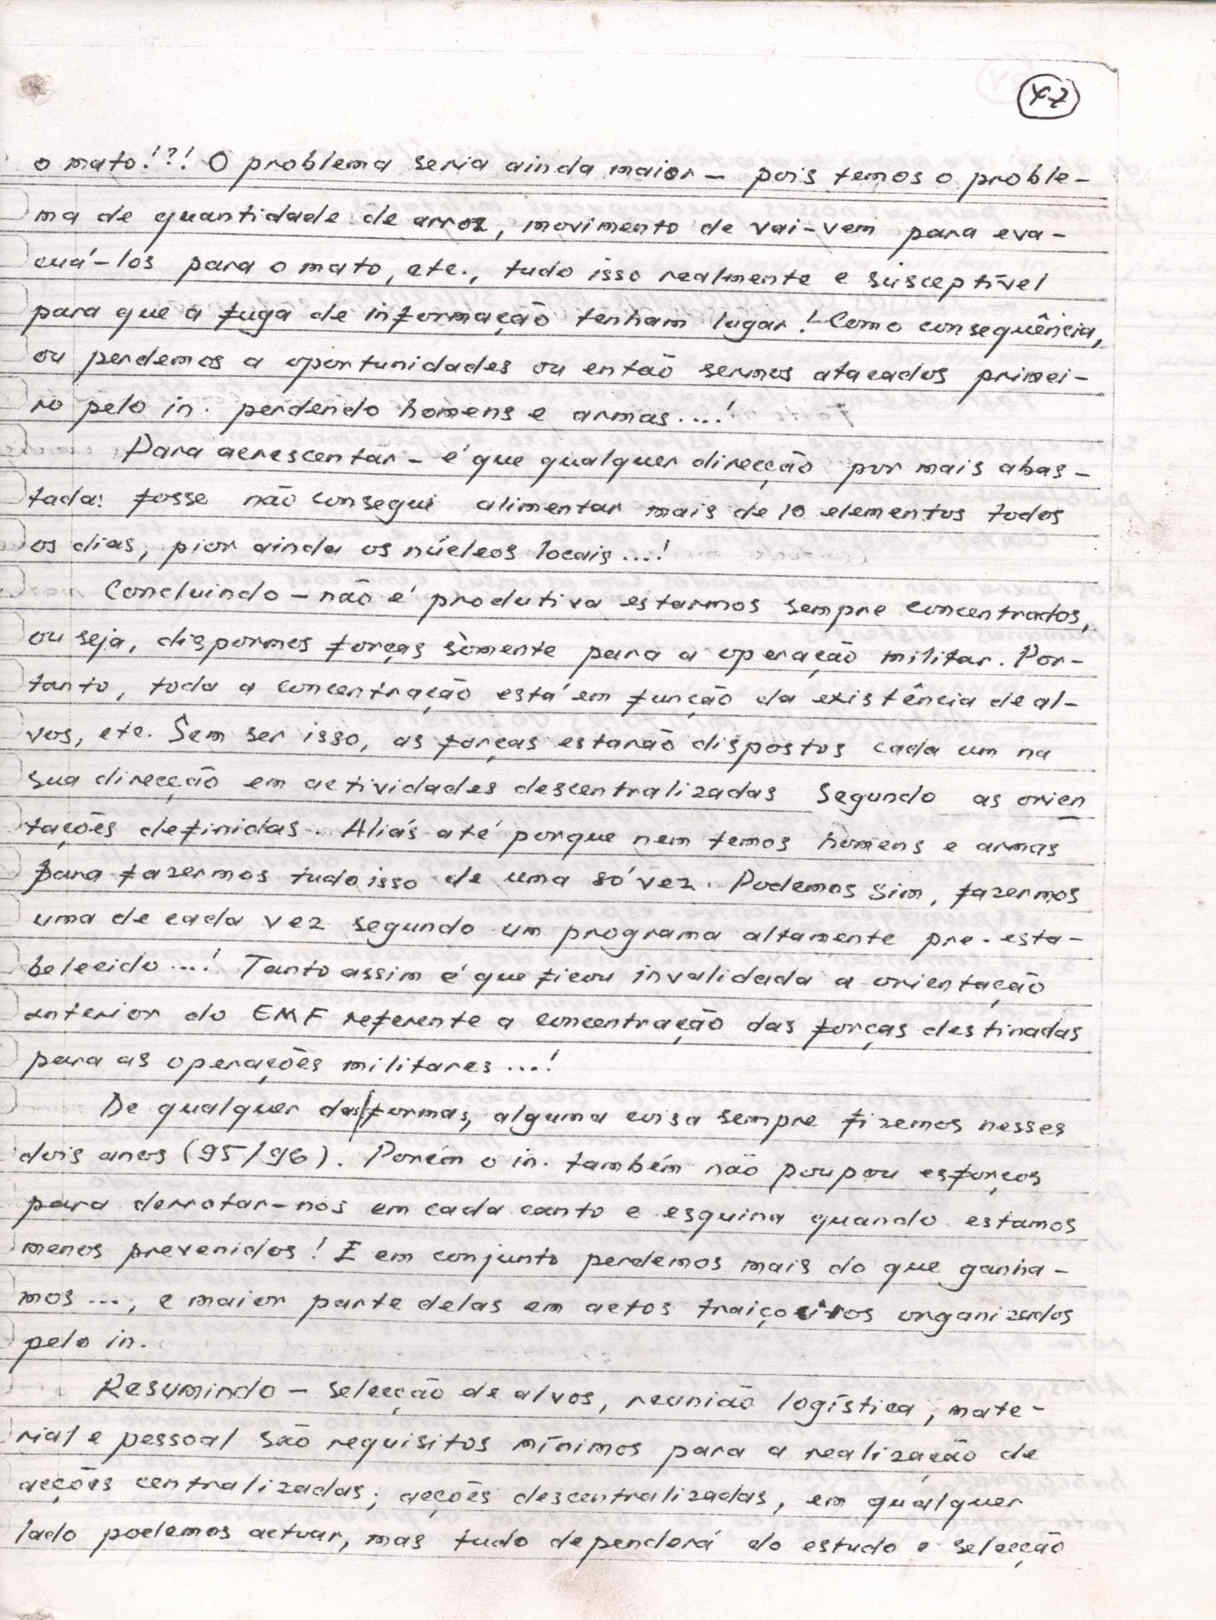 47
o mato!?! O problema seria ainda maior - pois temos o proble-
ma de quantidade de arroz, movimento de vai-vem para eva-
cuá-los para o mato, etc., tudo isso realmente e susceptível
para que a fuga de informação tenham lugar! Como consequência,
ou perdemos a oportunidades ou então sermos atacados primei-
ro pelo in. perdendo homens e armas....!
Para acrescentar - é que qualquer direcção por mais abas-
tada: fosse não consegui alimentar mais de 10 elementos todos
os dias, pior ainda os núcleos locais...!
Concluindo - não é produtiva estarmos sempre concentrados,
ou seja, dispormos forças sòmente para a operação militar. Por-
tanto, toda a concentração está em função da existência de al-
vos, etc. Sem ser isso, as forças estarão dispostos cada um na
sua direcção em actividades descentralizadas segundo as orien
tações definidas. Aliás até porque nem temos homens e armas
para fazermos tudo isso de uma só vez. Podemos sim, fazermos
uma de cada vez segundo um programa altamente pre-esta-
belecido...! Tanto assim é que ficou invalidada a orientação
anterior do EMF referente a concentração das forças destinadas
para as operações militares...!
De qualquer das/formas, alguma coisa sempre fizemos nesses
dois anos (95/96). Porém o in. também não poupou esforços
para derrotar-nos em cada canto e esquina quando estamos
menos prevenidos! E em conjunto perdemos mais do que ganha-
mos..., e maior parte delas em actos traiçoeiros organizados
pelo in.
Resumindo - selecção de alvos, reunião logística, mate-
rial e pessoal são requisitos mínimos para a realização de
acções centralizadas; acções descentralizadas, em qualquer
lado podemos actuar, mas tudo dependerá do estudo e selecção